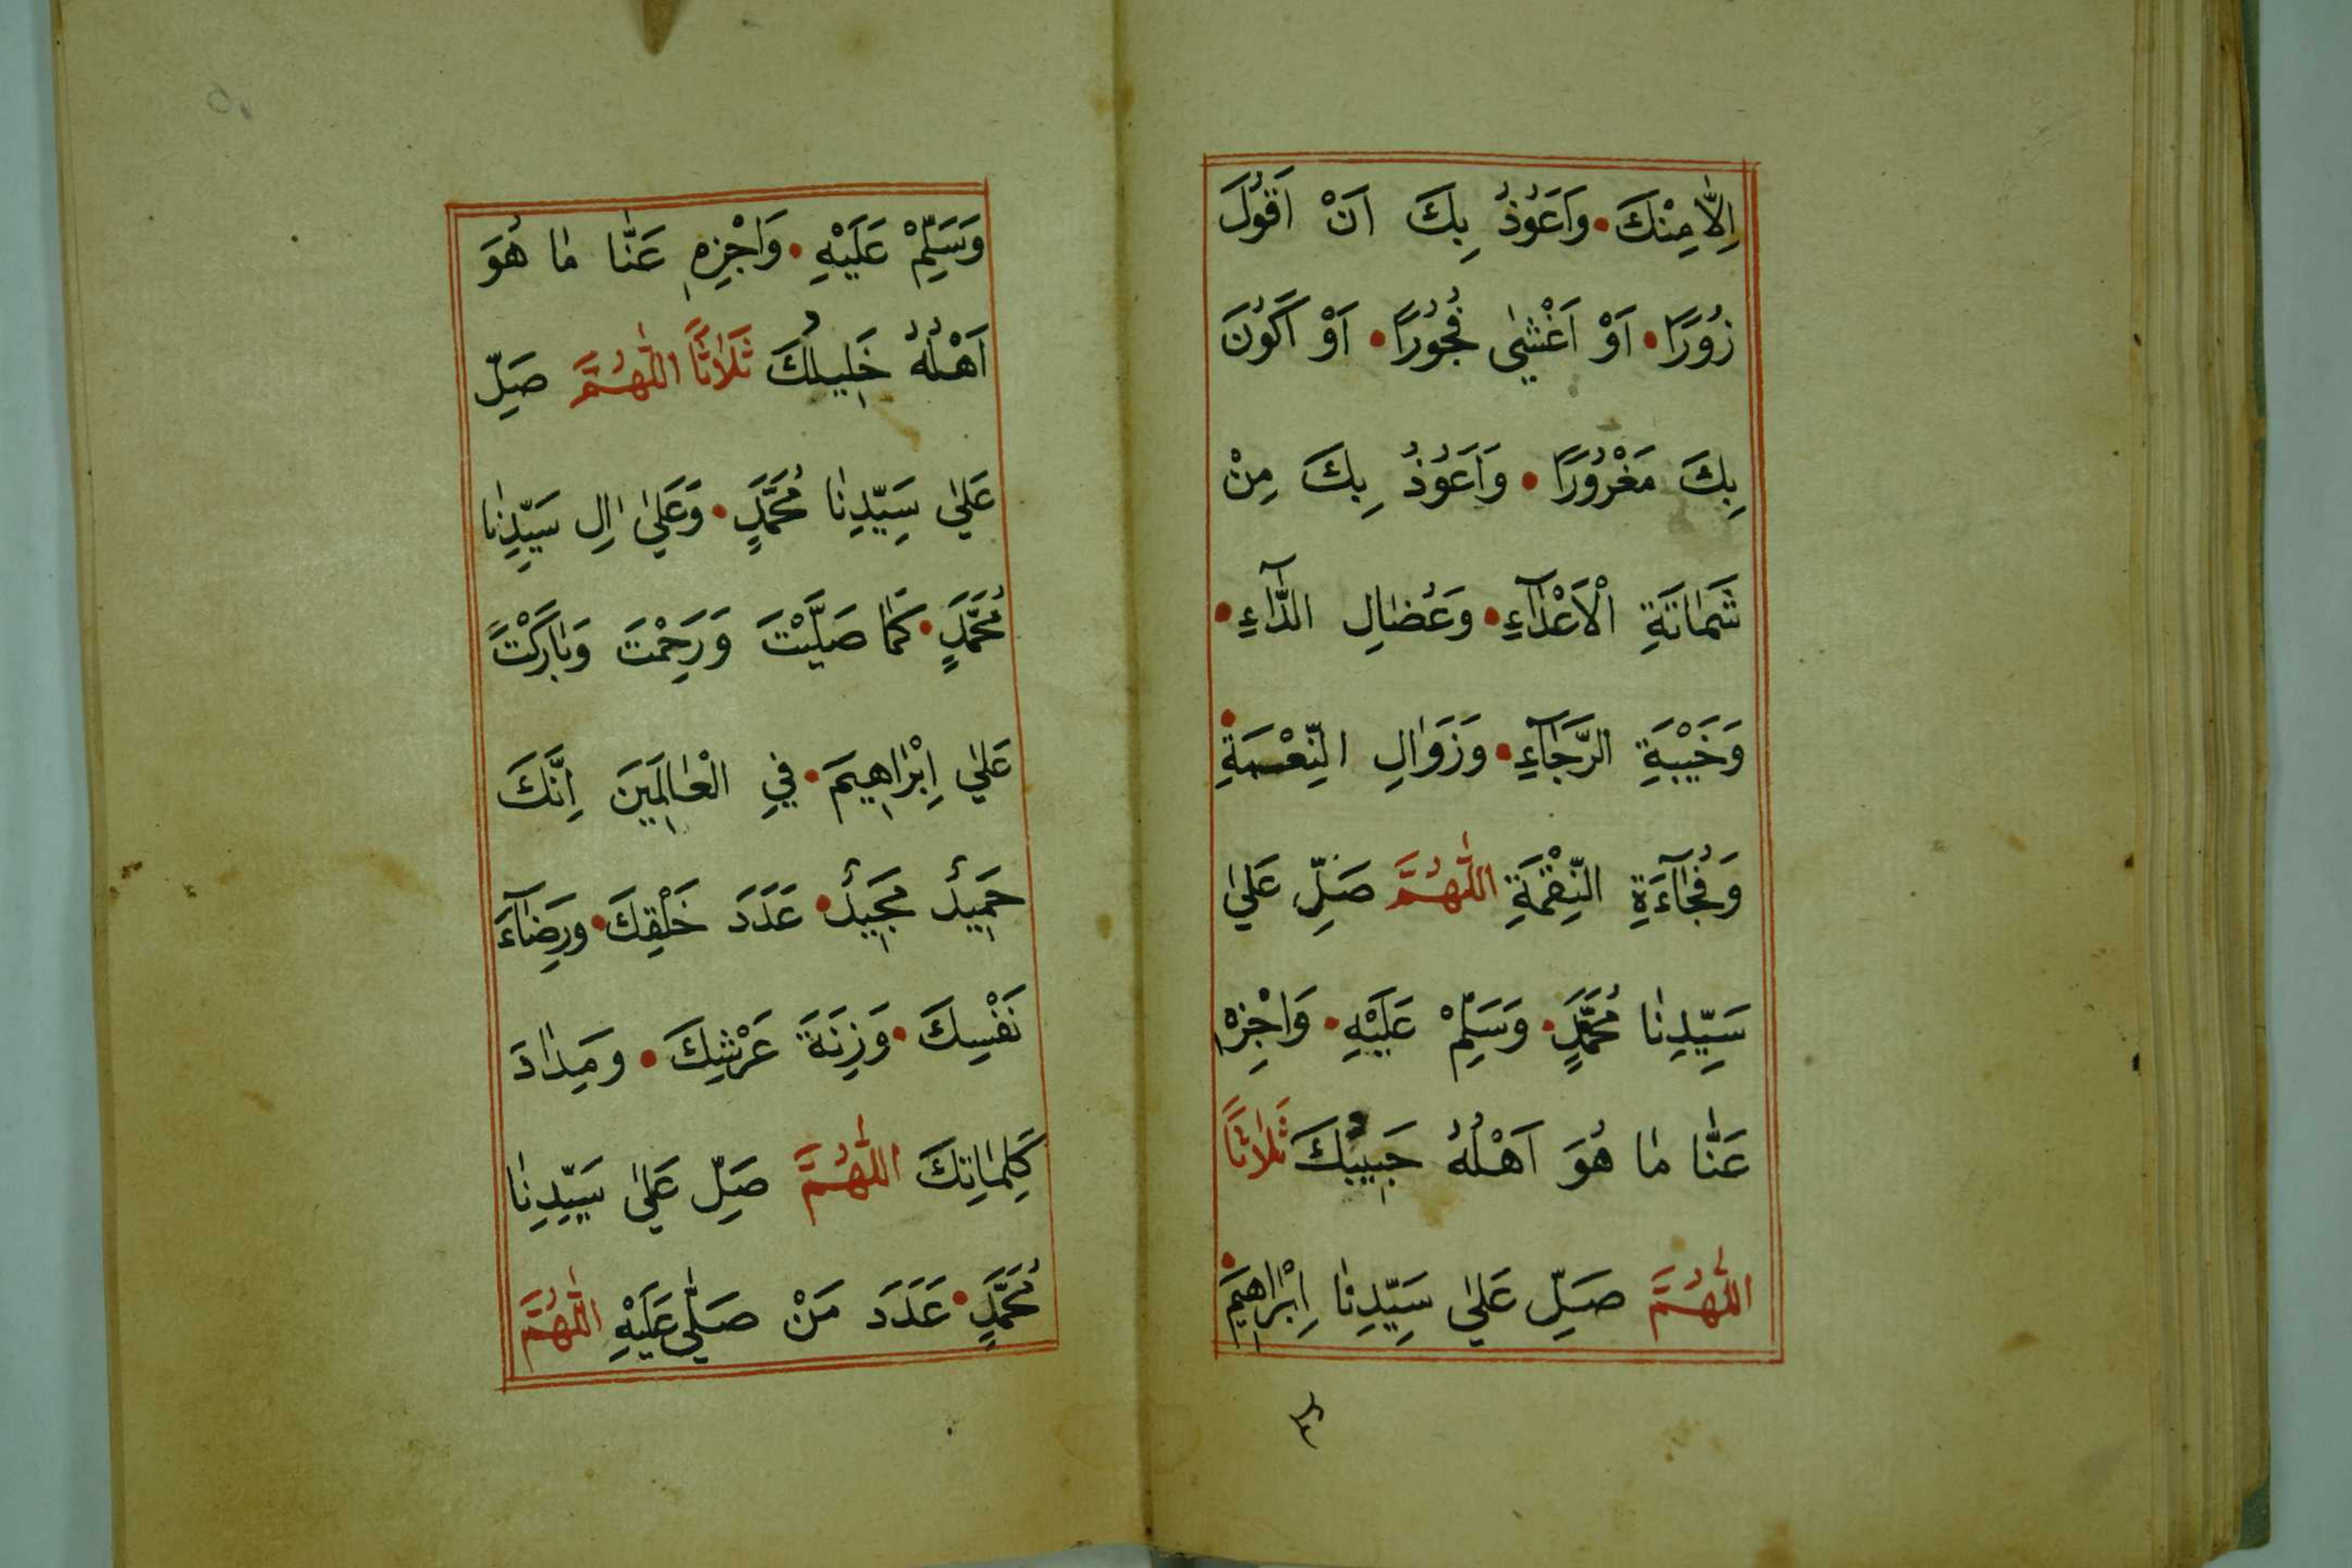 اِلَّا مِنْكَ • وَاَعُوذُ بِكَ اَنْ اَقُولَ
زُورًا • اَوْ اَغْشٰى فُجُورًا • اَوْ اَكُونَ
بِكَ مَغْرُورًا • وَاَعُوذُ بِكَ مِنْ
شَمَاتَةِ الْاَعْدَآءِ • وَعُضَالِ الدَّآءِ •
وَخَيْبَةِ الرَّجَآءِ • وَزَوَالِ النِّعْمَةِ •
وَفُجَآءَةِ النِّقْمَةِ اَللّٰهُمَّ صَلِّ عَلٰي
سَيِّدِنَا مُحَمَّدٍ • وَسَلِّمْ عَلَيْهِ • وَاجْزِهٖ
عَنَّا مَا هُوَ اَهْلُهُ حَبِيبُكَ ثَلَاثًا
اَللّٰهُمَّ صَلِّ عَلٰي سَيِّدِنَا اِبْرَاهِيمَ •
وَسَلِّمْ عَلَيْهِ • وَاجْزِهٖ عَنَّا مَا هُوَ
اَهْلُهُ خَلِيلُكَ ثَلَاثًا اَللّٰهُمَّ صَلِّ
عَلٰي سَيِّدِنَا مُحَمَّدٍ • وَعَلٰي اٰلِ سَيِّدِنَا
مُحَمَّدٍ • كَمَا صَلَّيْتَ وَرَحِمْتَ وَبَارَكْتَ
عَلٰي اِبْرَاهِيمَ • فِي الْعَالَمِينَ اِنَّكَ
حَمِيدٌ مَجِيدٌ • عَدَدَ خَلْقِكَ • وَرِضَآءَ
نَفْسِكَ • وَزِنَةَ عَرْشِكَ • وَمِدَادَ
كَلِمَاتِكَ اَللّٰهُمَّ صَلِّ عَلٰي سَيِّدِنَا
مُحَمَّدٍ • عَدَدَ مَنْ صَلّٰي عَلَيْهِ اَللّٰهُمَّ